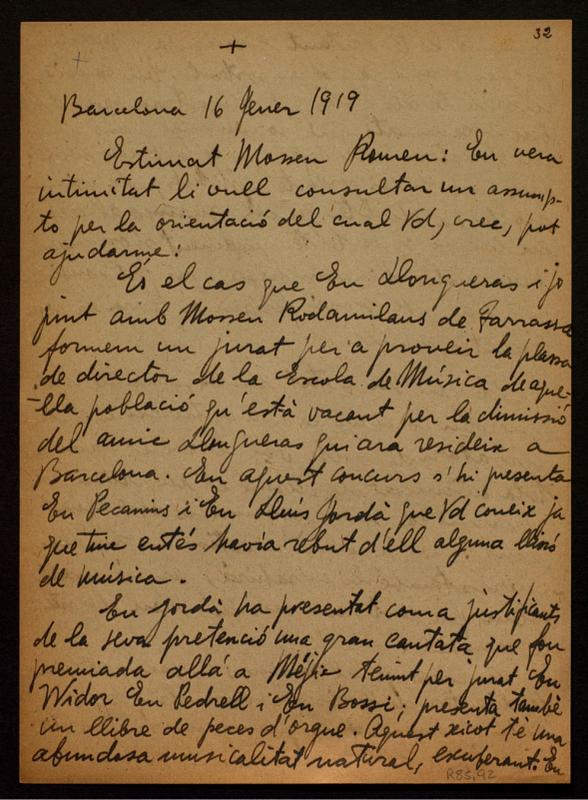 32
+
Barcelona 16 Jener 1919
Estimat Mossen Romeu: En vera
intimitat li vull consultar un assump-
to per la orientació del cual Vd, crec, pot
ajudarme:
Es el cas que En Llongueras i jo
junt amb Mossen Rodamilans de Tarrassa
formem un jurat per a proveir la plassa
de director de la Escola de Música de aque-
lla població qu'està vacant per la dimissió
del amic Llongueras qui ara resideix a
Barcelona. En aquest concurs s'hi presenta
En Pecanins i En Lluís Jordà que Vd coneix ja
que tinc entés havia rebut d'ell alguna llissó
de música.
En Jordà ha presentat com a justificants
de la seva pretenció una gran cantata que fou
premiada allá a Méjic tenint per jurat En
Widor En Pedrell i En Bossi; presenta també
un llibre de peces d'orgue. Aquest xicot té una
abundosa musicalitat natural, exuberant. En
R83,92